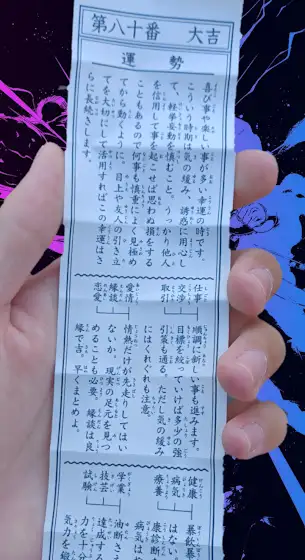 第八十番 大吉
運勢
喜び事や楽しい事が多い幸運の時です。
こういう時期は気の緩み、誘惑に用心し
て、軽挙妄動を慎むこと。うっかり他人
を信用して事を起こせば思わぬ損をする
こともあるので何事も慎重によく見極め
てから動くように。目上や友人の引き立
てを大切にして活用すればこの幸運はさ
らに長続きします。
仕事
交渉
取引
順調に新しい事も進みます。
目標を絞っていけば多少の強
引策も通る。ただし気の緩み
にはくれぐれも注意。
愛情
縁談
恋愛
情熱だけが先走りしてはい
ないか。現実の足元を見つ
めることも必要。縁談は良
縁で吉。早くまとめよ。
健康
病気
療養
暴飲暴
はない
康診断
病気は
学業
技芸
試験
油断さ
達成す
力を十分
気力を